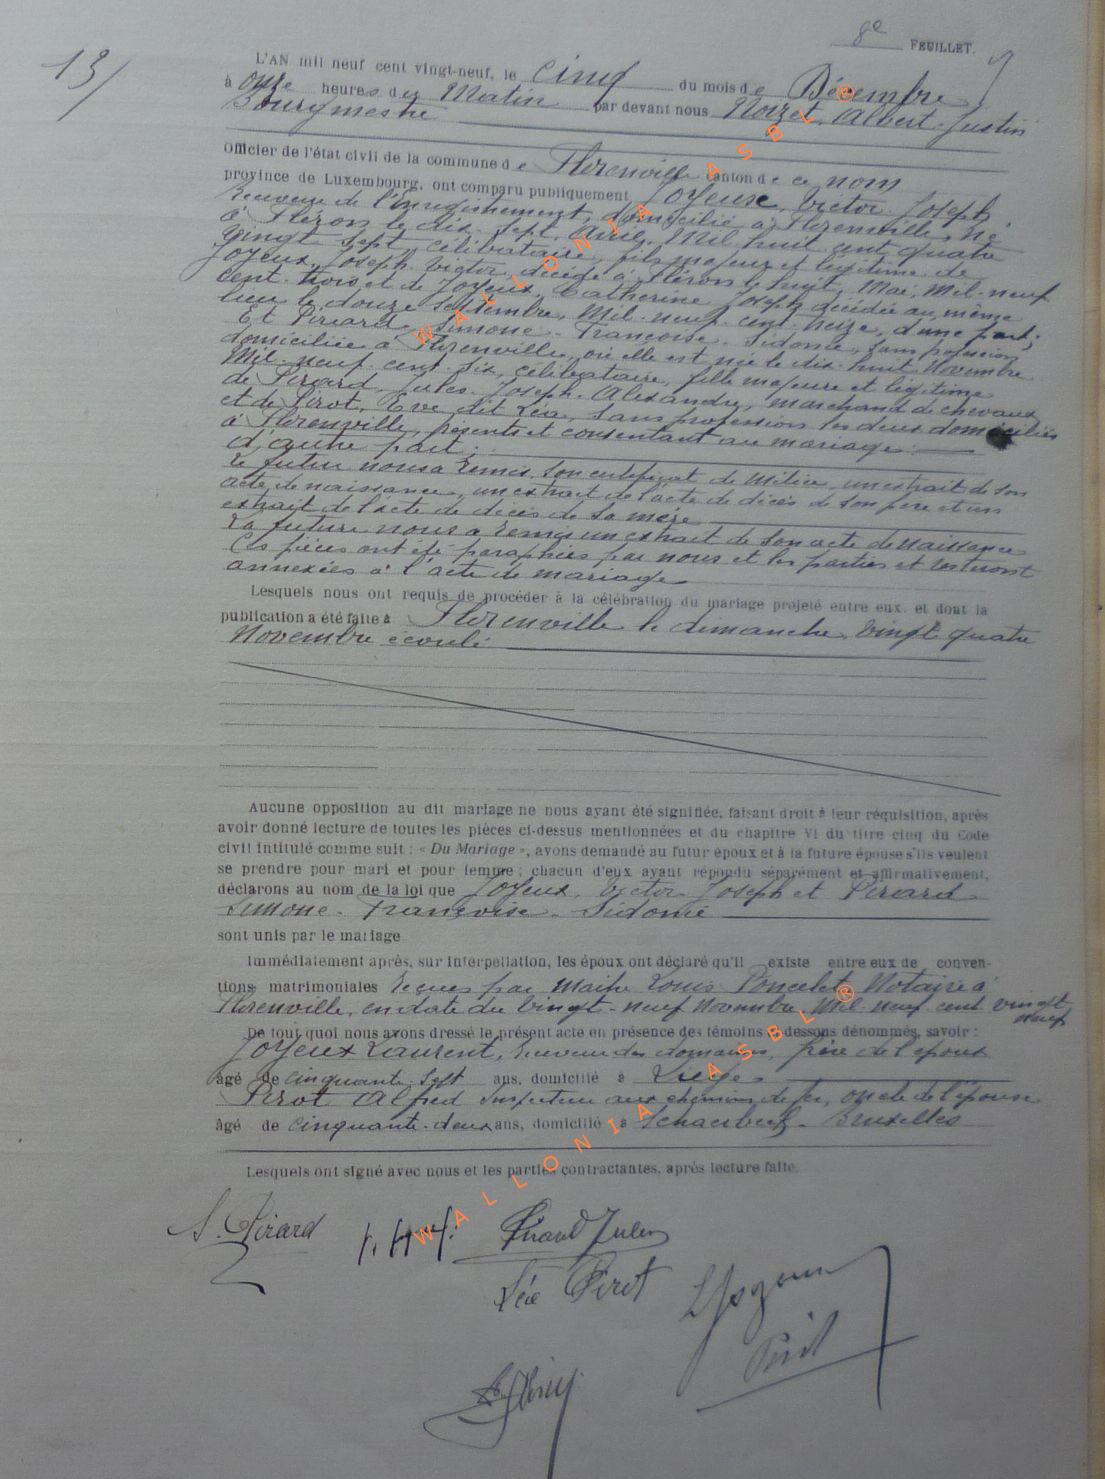 8e FEUILLET.
13/
L'AN mil neuf cent vingt-neuf, le cinq du mois de Décembre
à onze heures du Matin par devant nous Noizet, Albert-Justin
Bourgmestre
Officier de l'état civil de la commune de Florenville canton de ce nom
province de Luxembourg, ont comparu publiquement Joyeux, Victor Joseph,
Receveur de l'Enregistrement, domicilié à Florenville, né
à Fléron le dix-sept Avril Mil huit cent quatre
vingt sept, célibataire, fils majeur et légitime de
Joyeux, Joseph-Victor, décédé à Fléron le huit Mai, Mil-neuf
cent trois et de Joyeux, Catherine Joseph décédée au même
lieu le douze Septembre, Mil-neuf-cent-treize, d'une part;
Et Pirard, Simone-Françoise-Sidonie, sans profession
domiciliée à Florenville, où elle est née le dix-huit Novembre
Mil-neuf-cent-six, célibataire, fille majeure et légitime
de Pirard, Jules-Joseph-Alexandre, marchand de chevaux
et de Pirot, Eve dit Léa, sans profession les deux domiciliés
à Florenville, présents et consentant au mariage
d'autre part;
Le futur nous a remis son certificat de Milice, un extrait de son
acte de naissance, un extrait de l'acte de décès de son père et un
extrait de l'acte de décès de sa mère
La future nous a remis un extrait de son acte de naissance
Ces pièces ont été paraphées par nous et les parties et resteront
annexées à l'acte de mariage
Lesquels nous ont requis de procéder à la célébration du mariage projeté entre eux, et dont la
publication a été faite à Florenville le dimanche vingt quatre
Novembre écoulé
Aucune opposition au dit mariage ne nous ayant été signifiée, faisant droit à leur réquisition, après
avoir donné lecture de toutes les pièces ci-dessus mentionnées et du chapitre VI du titre cinq du Code
civil intitulé comme suit : « Du Mariage », avons demandé au futur époux et à la future épouse s'ils veulent
se prendre pour mari et pour femme ; chacun d'eux ayant répondu séparément et affirmativement,
déclarons au nom de la loi que Joyeux, Victor Joseph et Pirard
Simone-Françoise-Sidonie
sont unis par le mariage
Immédiatement après, sur interpellation, les époux ont déclaré qu'il existe entre eux de conven-
tions matrimoniales reçues par Maître Louis Poncelet Notaire à
Florenville, en date du Vingt-neuf Novembre Mil-neuf-cent vingt
neuf
De tout quoi nous avons dressé le présent acte en présence des témoins ci-dessous dénommés, savoir :
Joyeux Laurent, Receveur des domaines, frère de l'époux
âgé de cinquante-sept ans, domicilié à Liège
Pirot Alfred Inspecteur aux chemins de fer, oncle de l'épouse
âgé de cinquante-deux ans, domicilié à Schaerbeek-Bruxelles
Lesquels ont signé avec nous et les parties contractantes, après lecture faite.
S. Pirard
Pirard Jules
Léa Pirot
Pirot
WALLONIA ASBL®
WALLONIA ASBL®